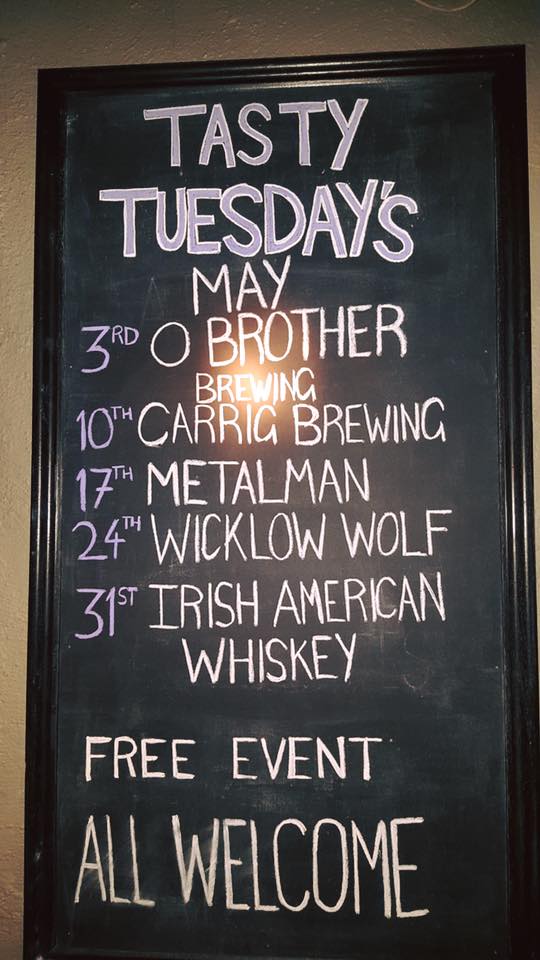 TASTY
TUESDAY'S
MAY
3RD O BROTHER
BREWING
10TH CARRIG BREWING
17TH METALMAN
24TH WICKLOW WOLF
31ST IRISH AMERICAN
WHISKEY
FREE EVENT
ALL WELCOME